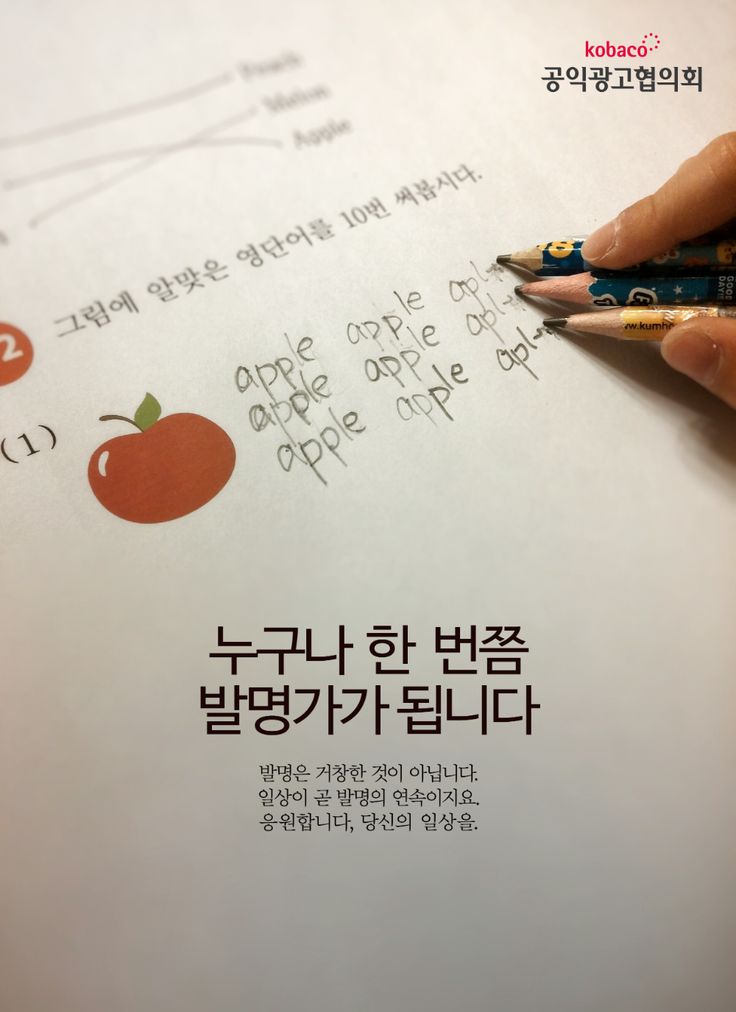 kobaco
공익광고협의회
Peach
Melon
Apple
2
그림에 알맞은 영단어를 10번 써봅시다.
(1)
apple apple apl
apple apple apl
apple apple apl
GOOD
DAY
www.kumho
누구나 한 번쯤
발명가가 됩니다
발명은 거창한 것이 아닙니다.
일상이 곧 발명의 연속이지요.
응원합니다, 당신의 일상을.